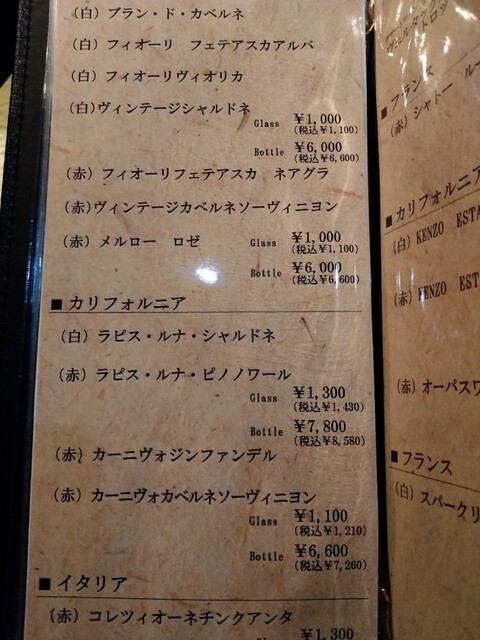 (白) ブラン・ド・カベルネ
(白) フィオーリ フェテアスカアルバ
(白) フィオーリヴィオリカ
(白)ヴィンテージシャルドネ
Glass ¥1,000
(税込¥1,100)
Bottle ¥6,000
(税込¥6,600)
(赤) フィオーリフェテアスカ ネアグラ
(赤)ヴィンテージカベルネソーヴィニヨン
(赤) メルロー ロゼ
Glass ¥1,000
(税込¥1,100)
Bottle ¥6,000
(税込¥6,600)
■カリフォルニア
(白) ラピス・ルナ・シャルドネ
(赤) ラピス・ルナ・ピノノワール
Glass ¥1,300
(税込¥1,430)
Bottle ¥7,800
(税込¥8,580)
(赤) カーニヴォジンファンデル
(赤) カーニヴォカベルネソーヴィニヨン
Glass ¥1,100
(税込¥1,210)
Bottle ¥6,600
(税込¥7,260)
■イタリア
(赤) コレツィオーネチンクアンタ
¥1,300
■フランス
(赤) シャトー ルー
■カリフォルニア
(白) KENZO ESTA
(赤) KENZO EST
(赤) オーパスワ
■フランス
(白) スパークリ